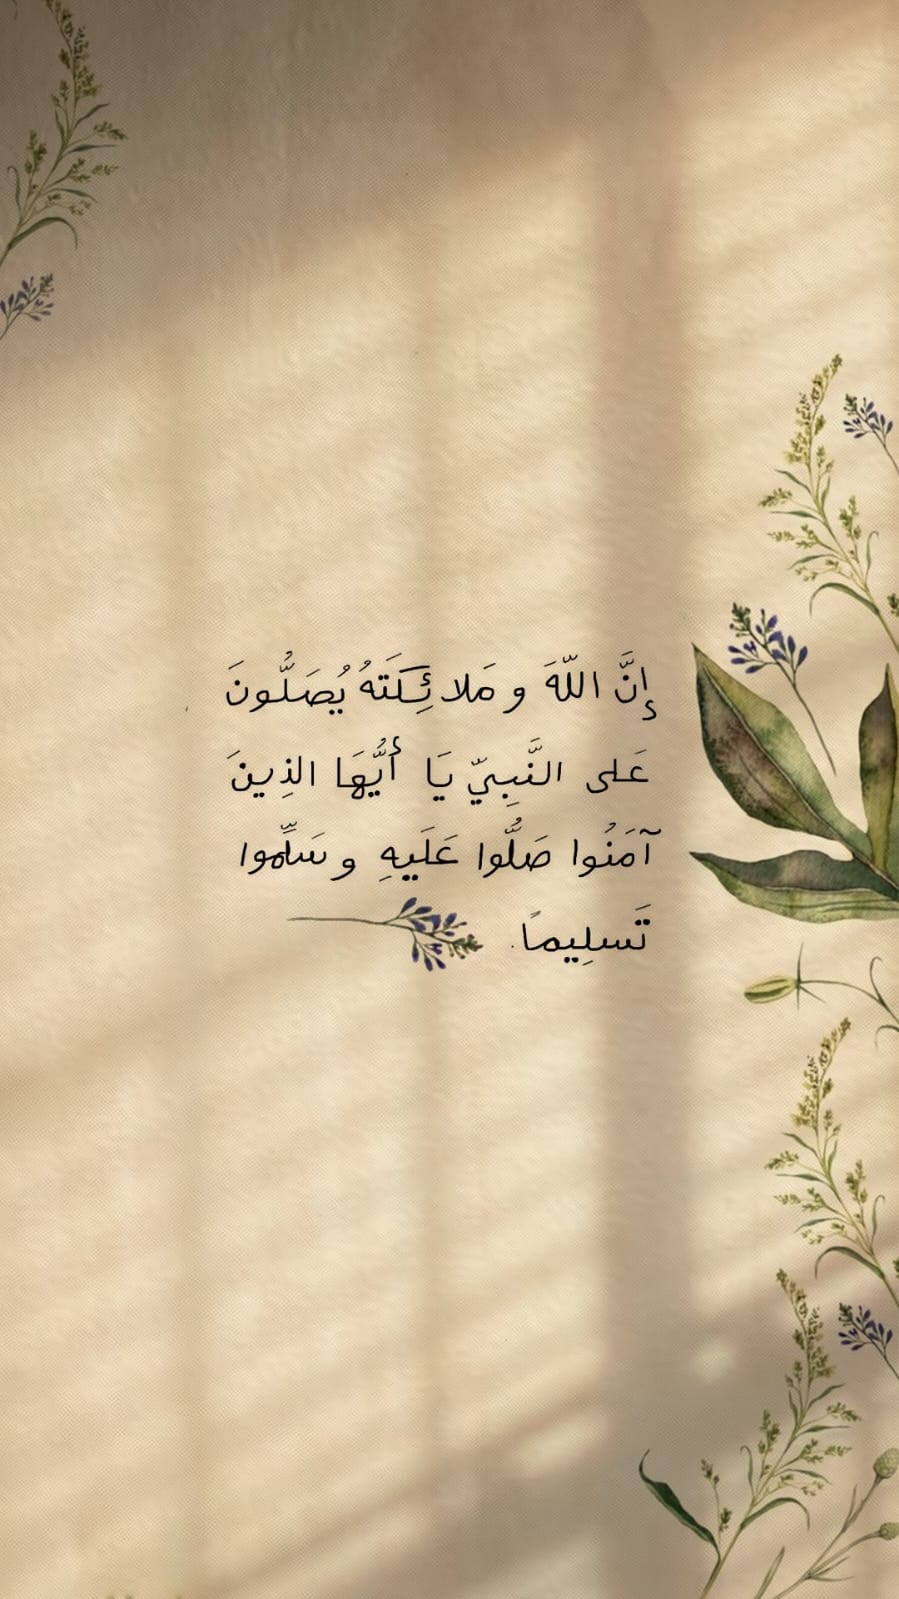 إِنَّ اللّهَ و مَلائِكَتَهُ يُصَلُّونَ
عَلى النَّبِيّ يَا أَيُّهَا الذِينَ
آمَنُوا صَلُّوا عَلَيهِ و سَلِّموا
تَسلِيماً.